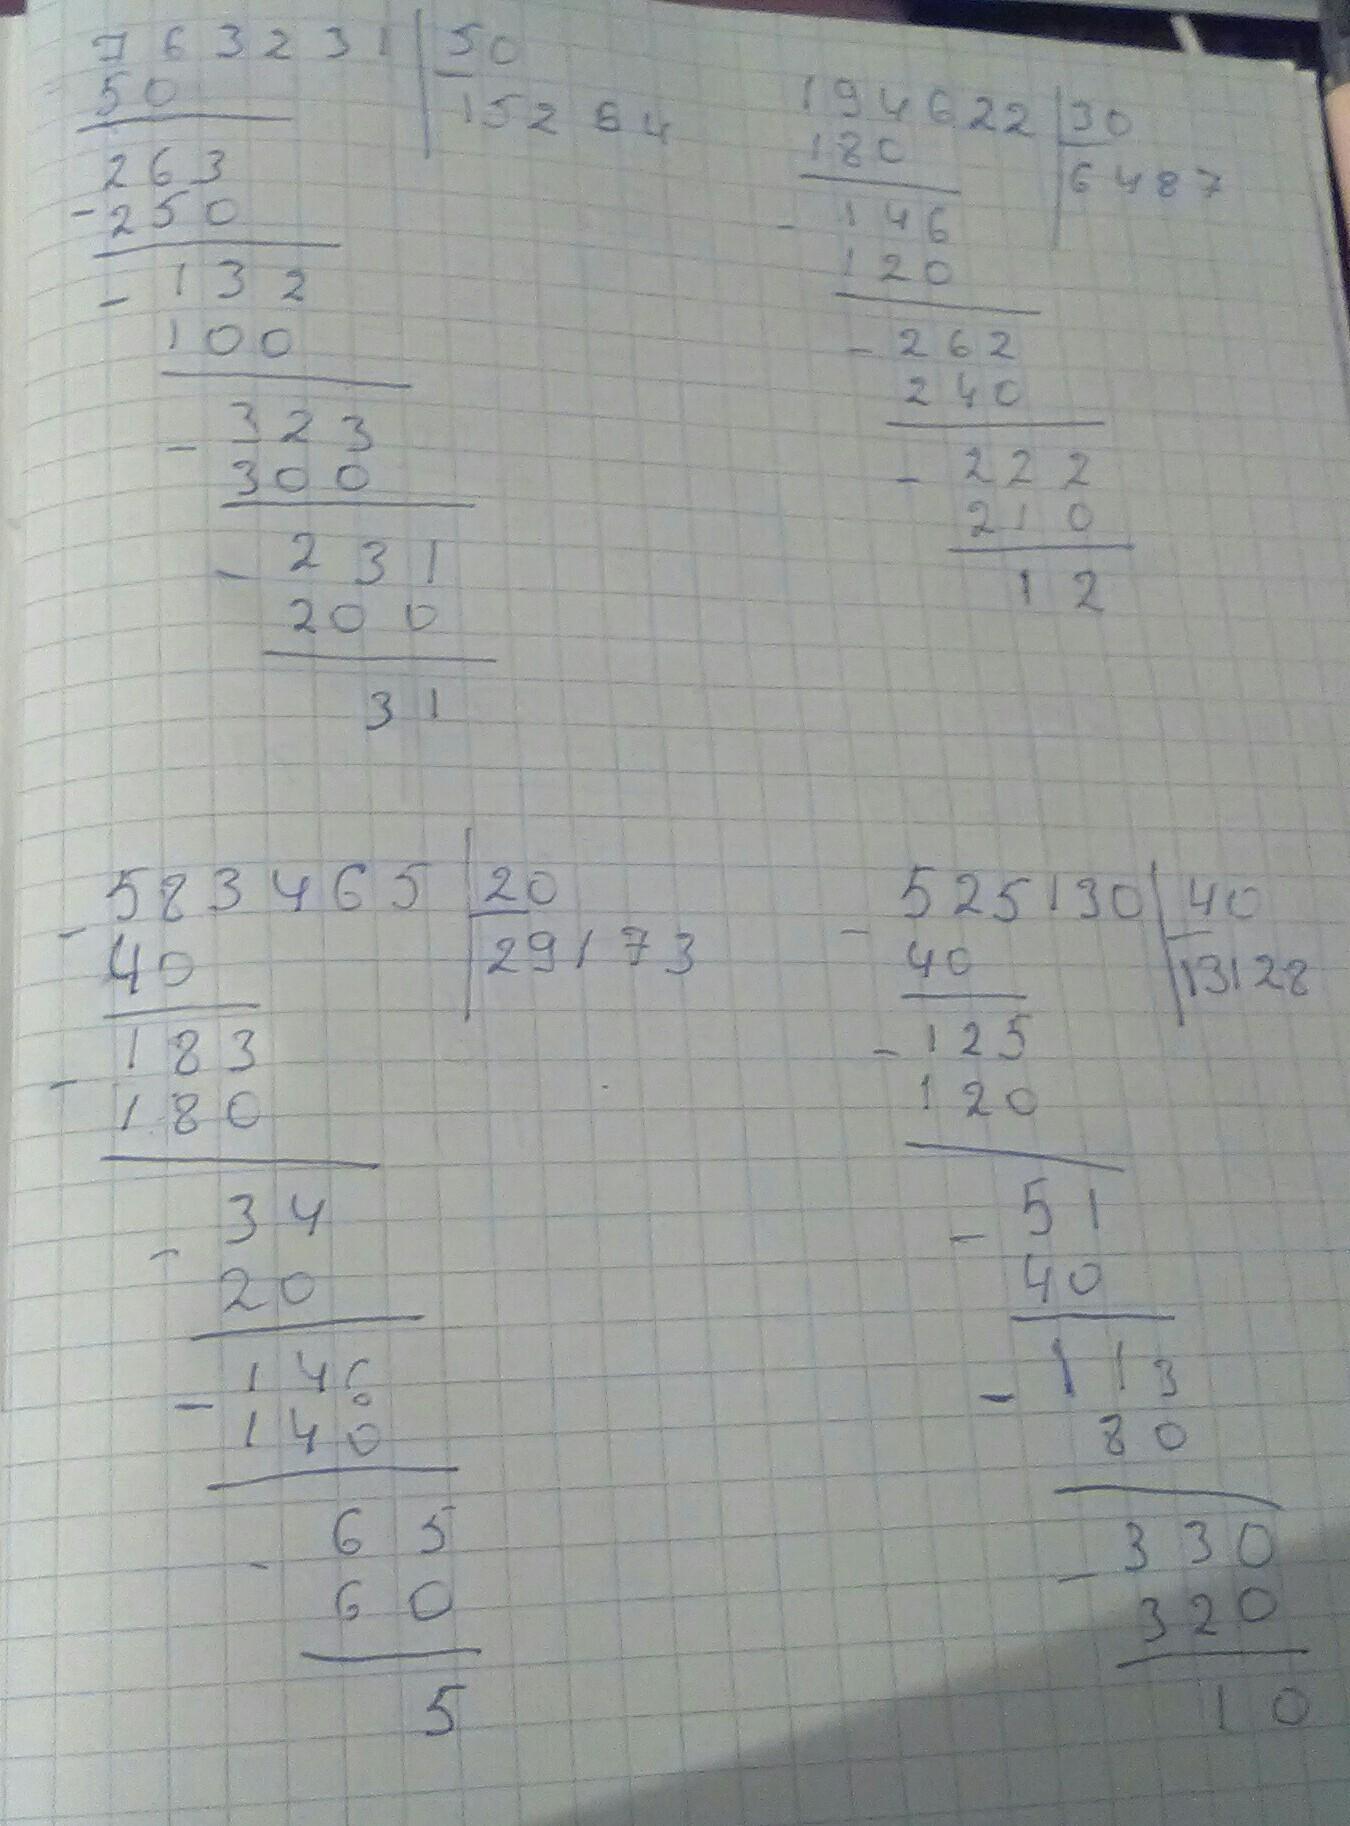 763231 50
50
15264
263
- 250
- 132
100
- 323
300
- 231
200
31
194622 30
180
6487
- 146
120
- 262
240
- 222
210
12
- 583465 20
40
29173
- 183
180
- 34
20
- 146
140
- 65
60
5
- 525130 40
40
13128
- 125
120
- 51
40
- 113
80
- 330
320
10